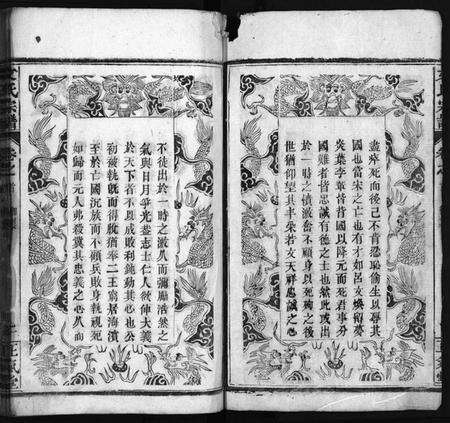 盡瘁死而後已不肯忍恥偷生以辱其
國也當宋之亡也有才如呂文煥留夢
炎葉李輩背國以降元而死君事分
國難者皆忠誠有德之士也然此或出
於一時之憤激奮不顧身以死殉之後
世猶仰望其丰采若文天祥忠誠之心
不徒出於一時之激久而彌勵浩然之
氣與日月爭光蓋志士仁人欲伸大義
於天下者不以成敗利鈍動其心也公
初被執既而得脫猶奉二王窮居海濱
至於亡國沉族而不顧兵敗身執視死
如歸而元人弗殺冀其忠義之心久而